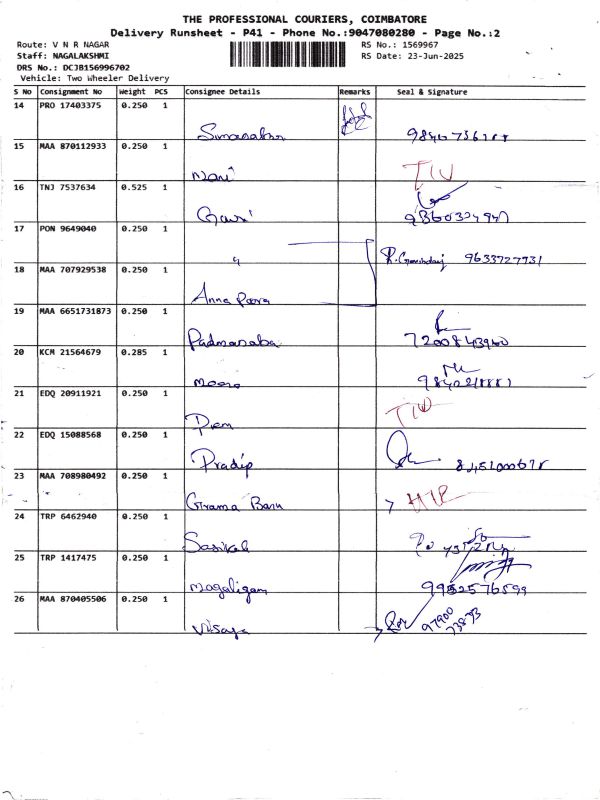 THE PROFESSIONAL COURIERS, COIMBATORE
Delivery Runsheet - P41 - Phone No.:9047080280 - Page No.:2
Route: V N R NAGAR RS No.: 1569967
Staff: NAGALAKSHMI RS Date: 23-Jun-2025
DRS No.: DC3B156996702
Vehicle: Two Wheeler Delivery
S No Consignment No Weight PCS Consignee Details Remarks Seal & Signature
14 PRO 17403375 0.250 1
15 MAA 870112933 0.250 1
Mani
16 TNJ 7537634 0.525 1
Gowri
17 PON 9649040 0.250 1
9633727731
18 MAA 707929538 0.250 1
Anna Poora
19 MAA 6651731873 0.250 1
Padmanaba 7200843940
20 KCM 21564679 0.285 1
21 EDQ 20911921 0.250 1
Prem
22 EDQ 15088568 0.250 1
Pradip
23 MAA 708980492 0.250 1
Grama Bank
24 TRP 6462940 0.250 1
25 TRP 1417475 0.250 1
Magaligam 9952576599
26 MAA 870405506 0.250 1
97900
73873